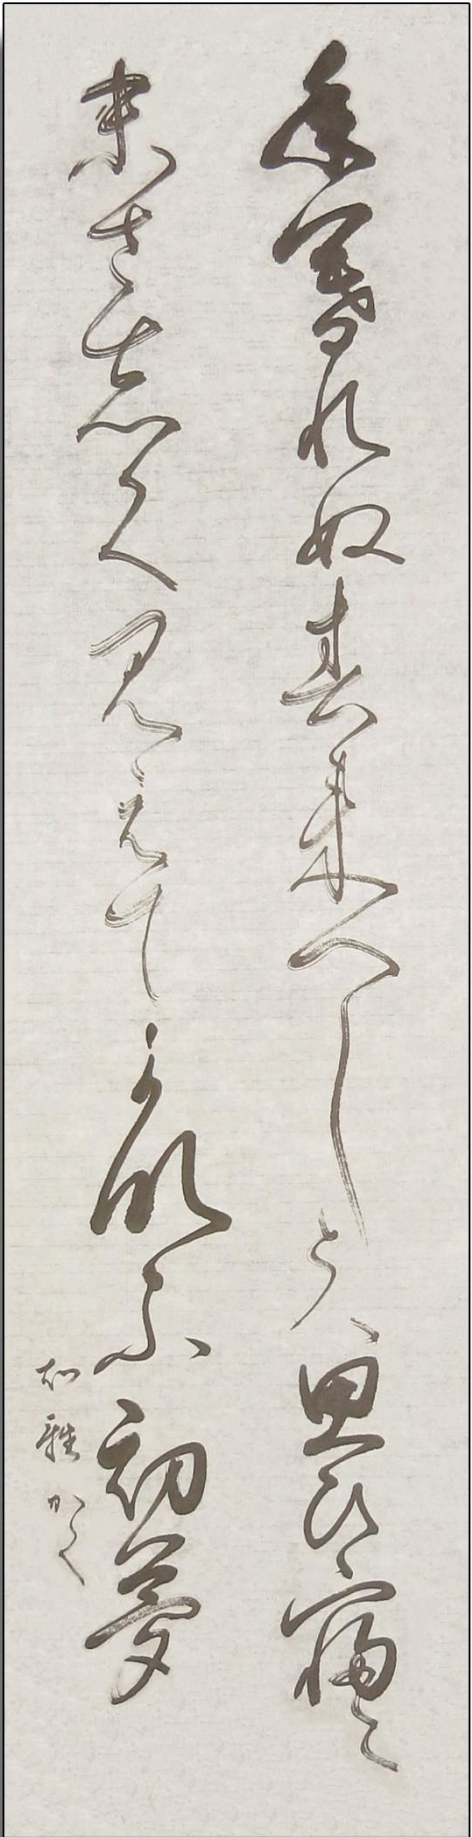 年暮れぬ春来へしとハ思ひ寝に
まさしく見えてかなふ初夢
雅かく